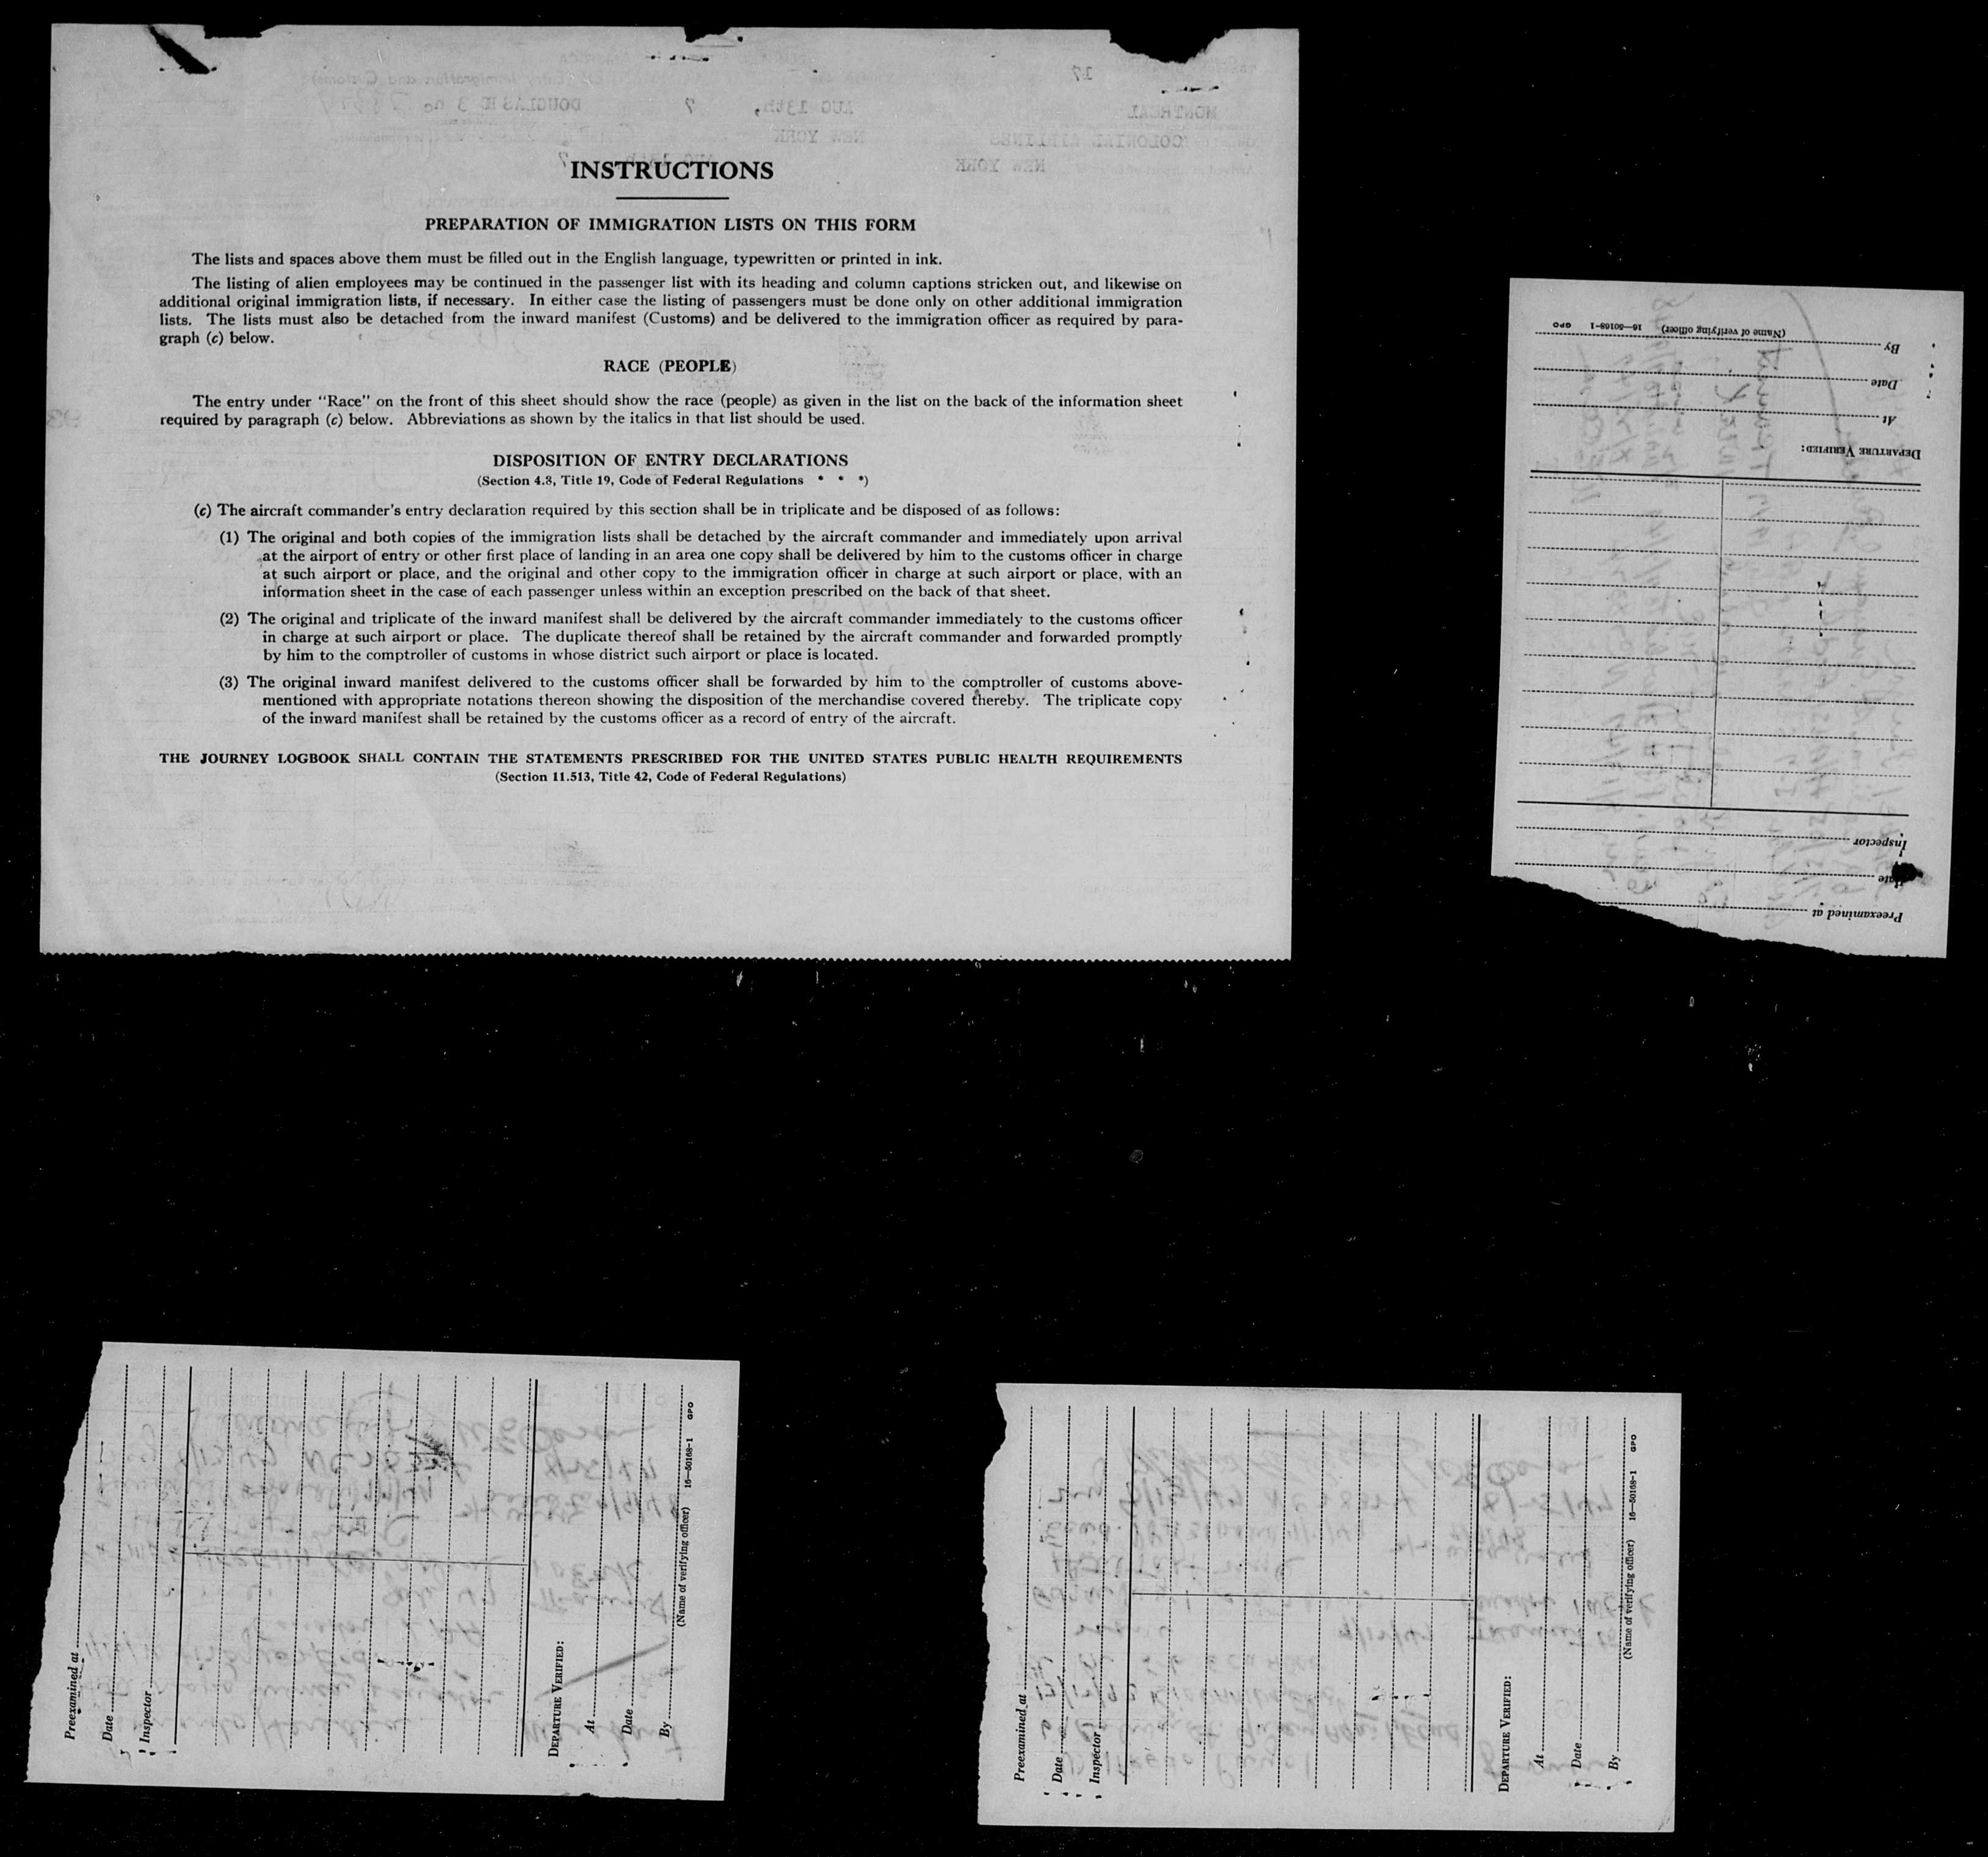 INSTRUCTIONS
PREPARATION OF IMMIGRATION LISTS ON THIS FORM
The lists and spaces above them must be filled out in the English language, typewritten or printed in ink.
The listing of alien employees may be continued in the passenger list with its heading and column captions stricken out, and likewise on
additional original immigration lists, if necessary. In either case the listing of passengers must be done only on other additional immigration
lists. The lists must also be detached from the inward manifest (Customs) and be delivered to the immigration officer as required by para-
graph (c) below.
RACE (PEOPLE)
The entry under "Race" on the front of this sheet should show the race (people) as given in the list on the back of the information sheet
required by paragraph (c) below. Abbreviations as shown by the italics in that list should be used.
DISPOSITION OF ENTRY DECLARATIONS
(Section 4.8, Title 19, Code of Federal Regulations * * *)
(c) The aircraft commander's entry declaration required by this section shall be in triplicate and be disposed of as follows:
(1) The original and both copies of the immigration lists shall be detached by the aircraft commander and immediately upon arrival
at the airport of entry or other first place of landing in an area one copy shall be delivered by him to the customs officer in charge
at such airport or place, and the original and other copy to the immigration officer in charge at such airport or place, with an
information sheet in the case of each passenger unless within an exception prescribed on the back of that sheet.
(2) The original and triplicate of the inward manifest shall be delivered by the aircraft commander immediately to the customs officer
in charge at such airport or place. The duplicate thereof shall be retained by the aircraft commander and forwarded promptly
by him to the comptroller of customs in whose district such airport or place is located.
(3) The original inward manifest delivered to the customs officer shall be forwarded by him to the comptroller of customs above-
mentioned with appropriate notations thereon showing the disposition of the merchandise covered thereby. The triplicate copy
of the inward manifest shall be retained by the customs officer as a record of entry of the aircraft.
THE JOURNEY LOGBOOK SHALL CONTAIN THE STATEMENTS PRESCRIBED FOR THE UNITED STATES PUBLIC HEALTH REQUIREMENTS
(Section 11.513, Title 42, Code of Federal Regulations)
Preexamined at
Date
Inspector
DEPARTURE VERIFIED:
At
Date
By
(Name of verifying officer) 16—50168-1 GPO
Preexamined at
Date
Inspector
DEPARTURE VERIFIED:
At
Date
By
(Name of verifying officer) 16—50168-1 GPO
Preexamined at
Date
Inspector
DEPARTURE VERIFIED:
At
Date
By
(Name of verifying officer) 16—50168-1 GPO